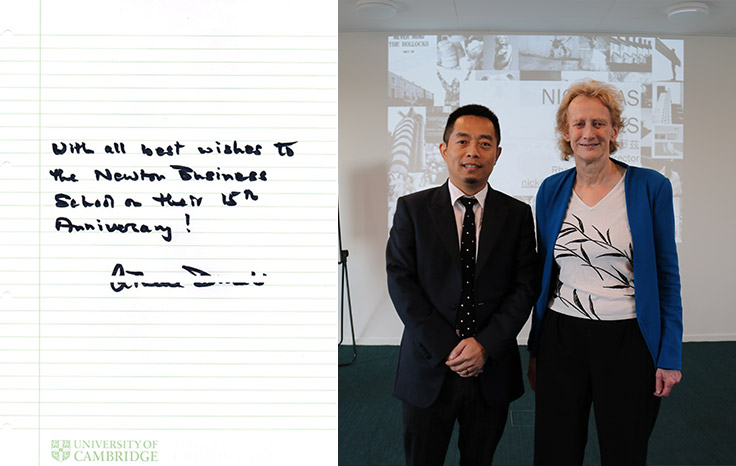 With all best wishes to
the Newton Business
School on their 15th
Anniversary!
UNIVERSITY OF
CAMBRIDGE
THE BOLLOCKS